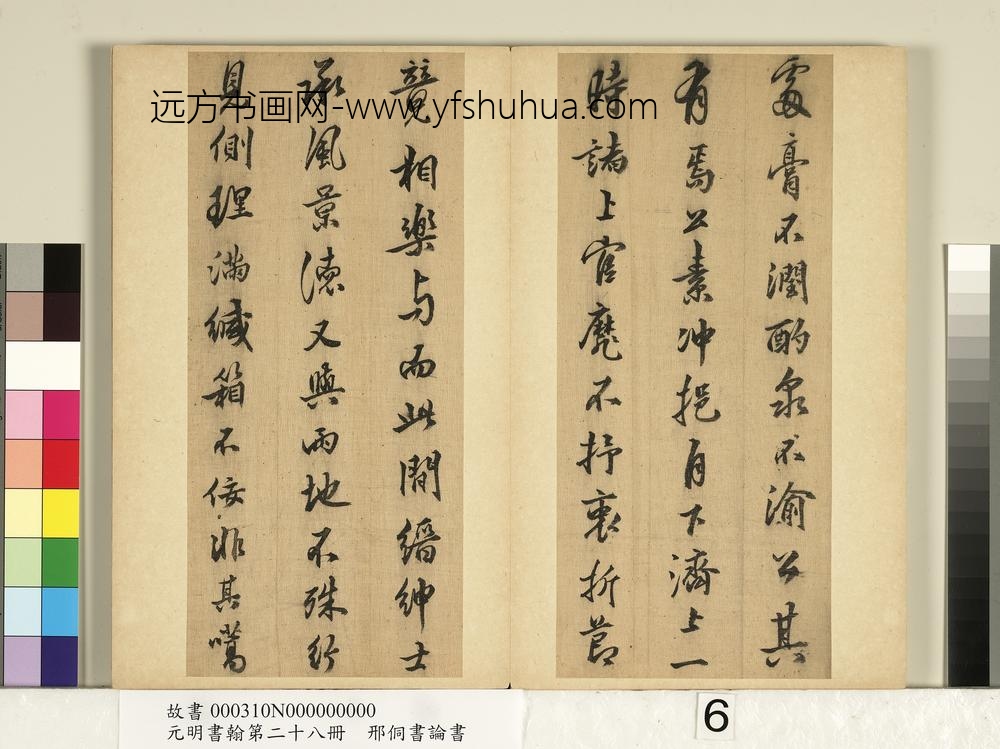 處膏不潤酌泉不渝公其
有焉公素冲挹自下濟上一
時諸上官靡不抒衷折節
競相樂与而此間縉紳士
承風景德又與兩地不殊行
見側理滿緘箱不佞非其嚆
远方书画网-www.yfshuhua.com
故書 000310N000000000
元明書翰第二十八冊 邢侗書論書
6